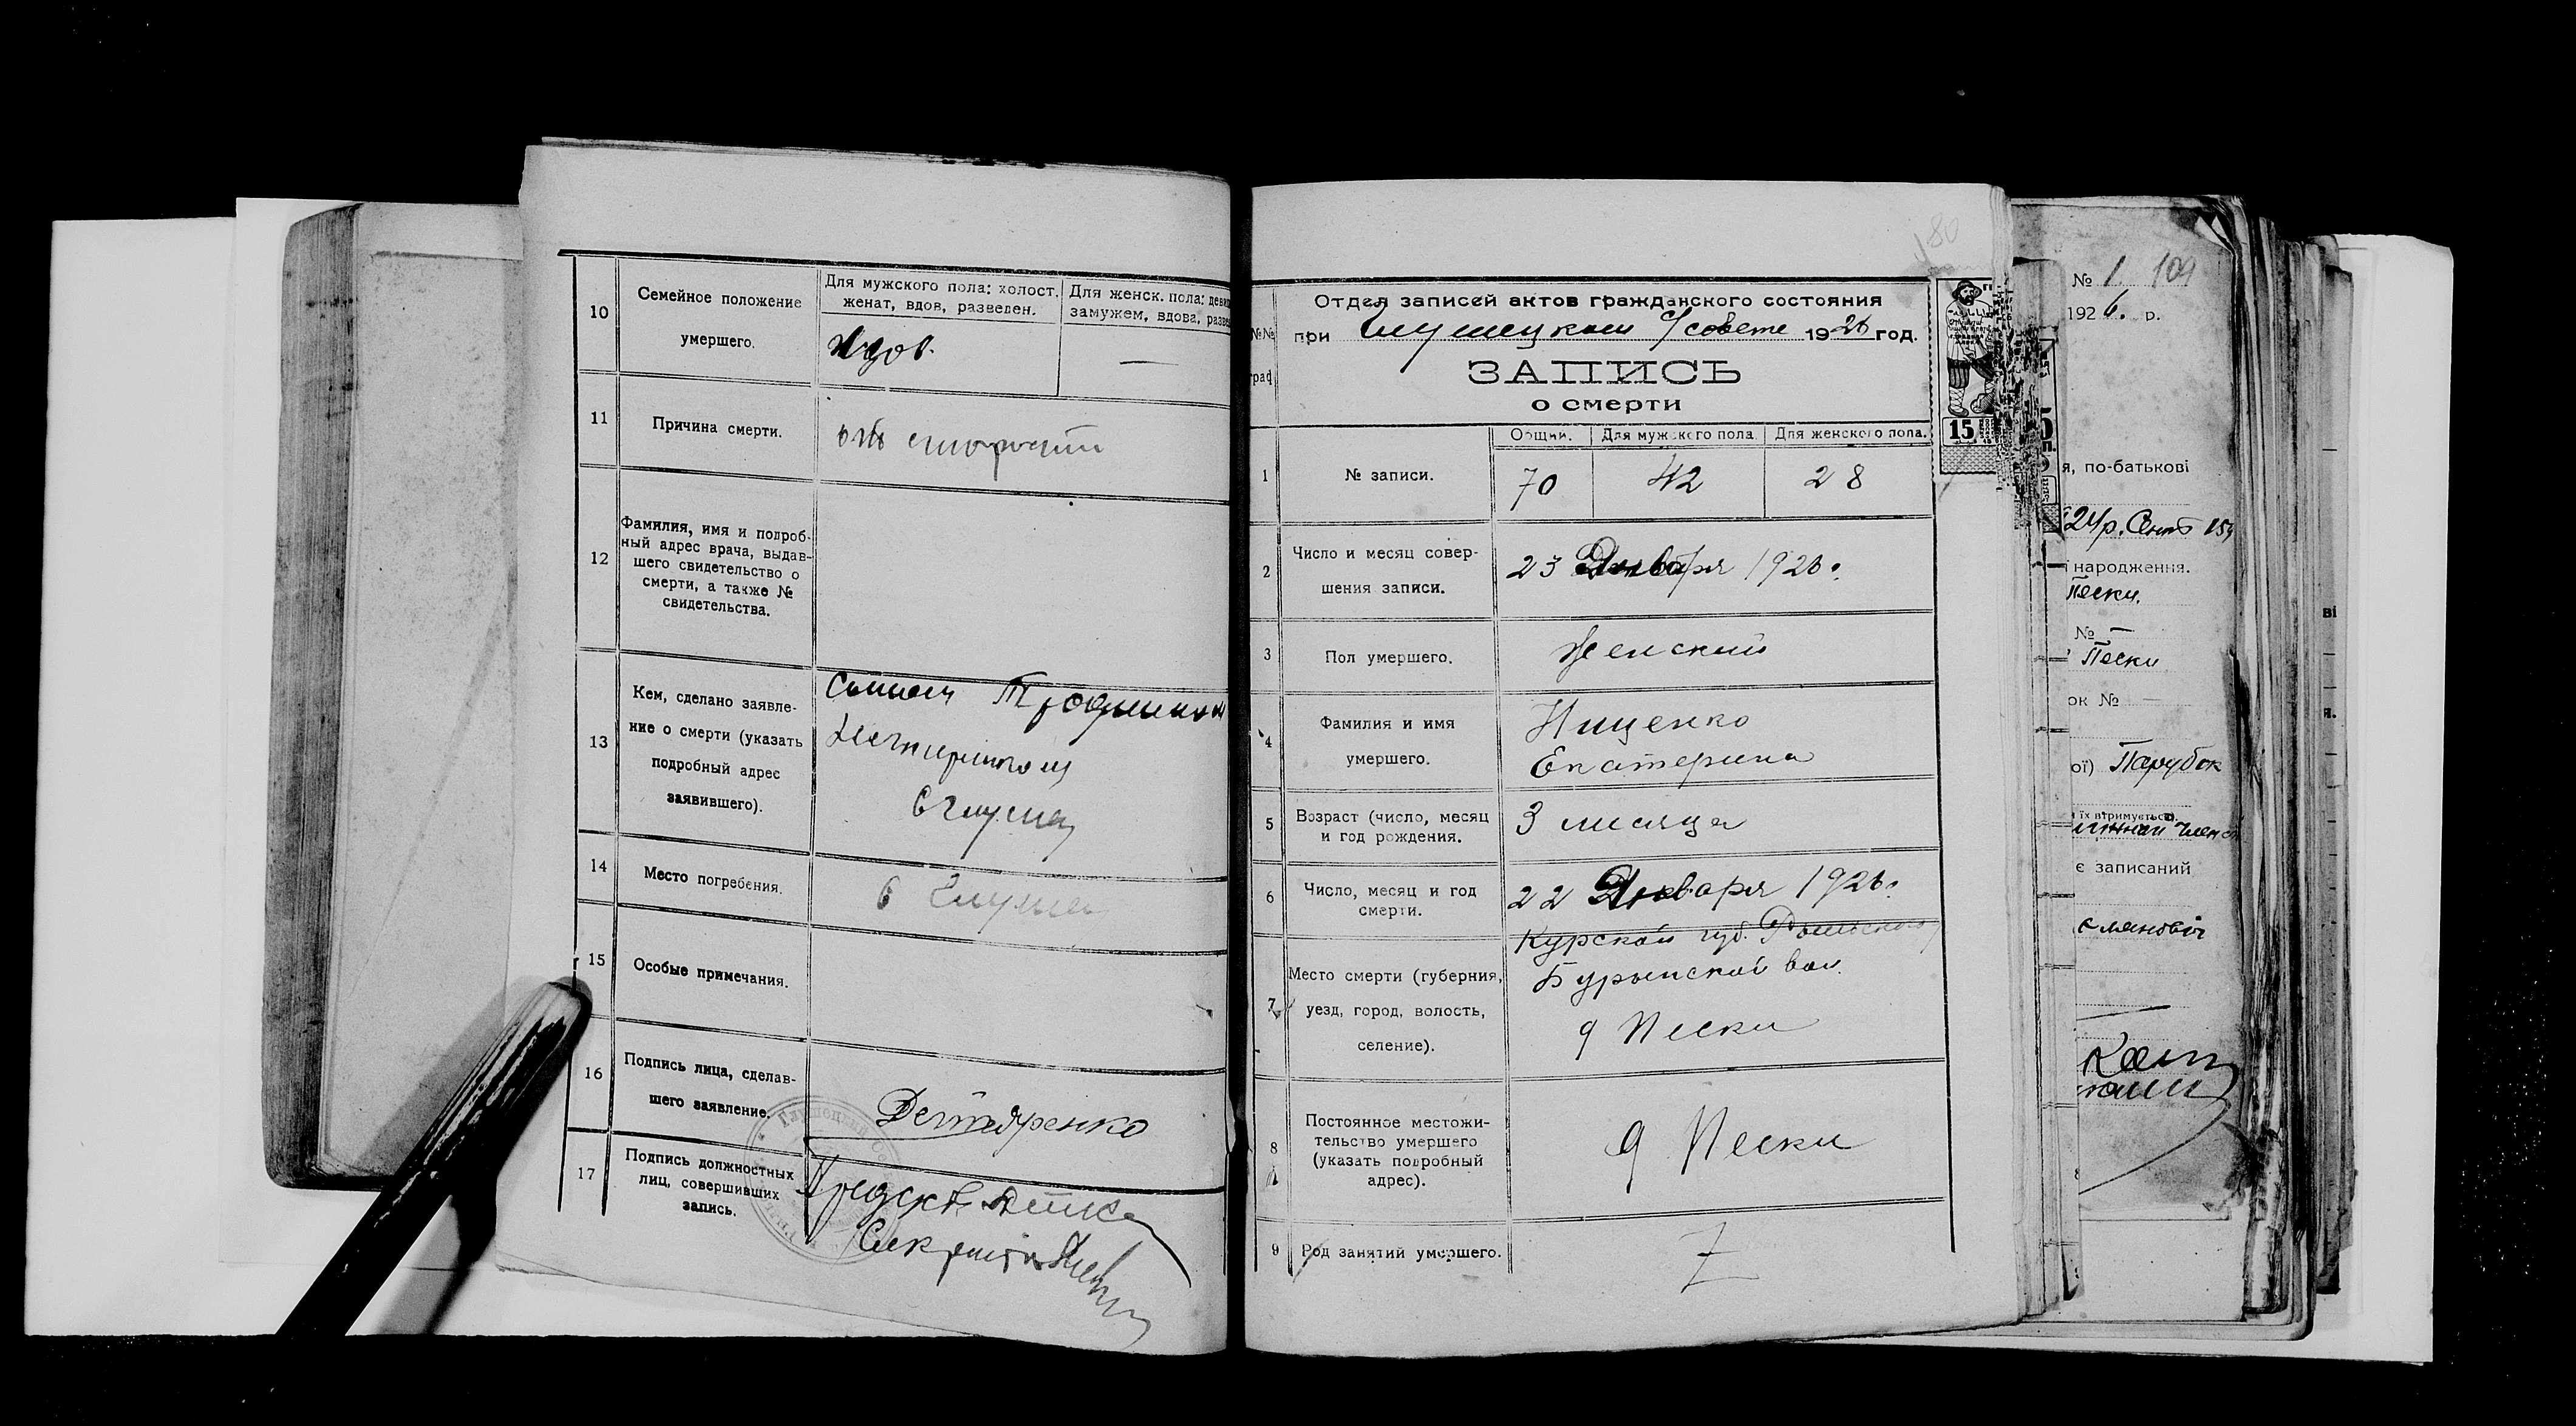 10
Семейное положение
умершего.
Для мужского пола: холост,
женат, вдов, разведен.
Для женск. пола: девица
замужем, вдова, разве
вдов.
—
11
Причина смерти.
отъ старости
12
Фамилия, имя и подроб-
ный адрес врача, выдав-
шего свидетельство о
смерти, а также №
свидетельства.
13
Кем, сделано заявле-
ние о смерти (указать
подробный адрес
заявившего).
Сыном Трофимом
14
Место погребения.
15
Особые примечания.
16
Подпись лица, сделав-
шего заявление.
Дегтяренко
17
Подпись должностных
лиц, совершивших
запись.
180
№№
граф
Отдел записей актов гражданского состояния
при Глушецком с/совете 1926 год.
ЗАПИСЬ
о смерти
15
1
№ записи.
Общий.
Для мужского пола
Для женского пола.
70
42
28
2
Число и месяц совер-
шения записи.
23 Января 1926.
3
Пол умершего.
Женский
4
Фамилия и имя
умершего.
Нищенко
Екатерина
5
Возраст (число, месяц
и год рождения.
3 месяца
6
Число, месяц и год
смерти.
22 Января 1926.
7
Место смерти (губерния,
уезд, город, волость,
селение).
Курской губ. Рыльского
Бурынской вол.
д Пески
8
Постоянное местожи-
тельство умершего
(указать подробный
адрес).
д. Пески
9
Род занятий умершего.
№ 1 109
1926. р.
я, по-батькові
народження.
Пески.
№ —
Пески
ок № —
ої) Парубок
їх втримується).
є записаний